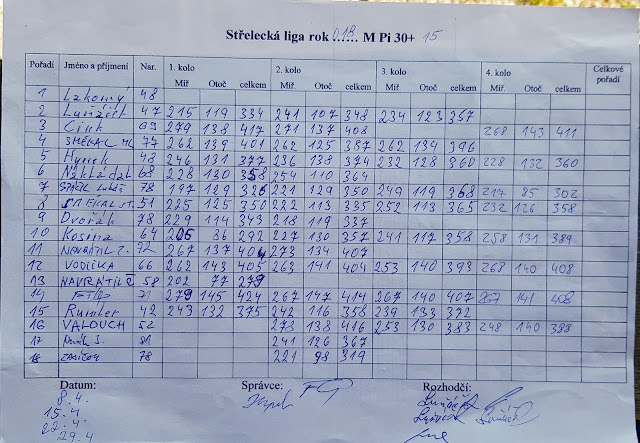 Střelecká liga rok 018 M Pi 30+ 15
Pořadí Jméno a příjmení Nar. 1. kolo 2. kolo 3. kolo 4. kolo Celkové pořadí
Míř Otoč celkem Míř Otoč celkem Míř Otoč celkem Míř Otoč celkem
1 48
2 47 215 119 334 241 107 348 234 123 357
3 Cink 69 279 138 417 271 137 408 268 143 411
4 77 262 139 401 262 125 387 262 134 396
5 Hynek 48 246 131 377 236 138 374 232 128 360 228 132 360
6 Nakládal 68 228 130 358 254 110 364
7 78 197 129 326 221 129 350 249 119 368 217 85 302
8 SMEKAL ST. 51 225 125 350 222 113 335 252 113 365 232 126 358
9 Dvořák 78 229 114 343 218 119 337
10 Kosina 64 36 292 227 130 357 241 117 358 258 131 389
11 NAVRÁTIL 72 267 137 404 273 134 407
12 VODIČKA 66 262 143 405 263 141 404 253 140 393 268 140 408
13 NAVRÁTIL 58 202 77 279
14 71 279 145 424 267 147 414 267 140 407 267 141 408
15 Rumler 42 243 132 375 242 116 358 239 133 372
16 VALOUCH 52 278 138 416 253 130 383 248 140 388
17 241 126 367
18 78 221 98 319
Datum: Správce: Rozhodčí:
8.4.
15.4
22.4.
29.4